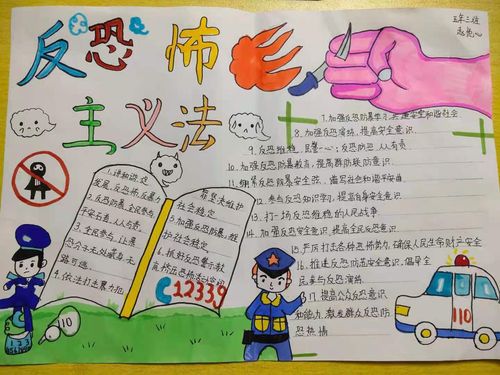 反恐怖
主义法
五年三班
7.加强反恐防暴学习,共建安全和谐社会
8.加强反恐演练,提高安全意识
9.反恐维稳,民警一心;反恐防恐,人人有责
10.加强反恐防暴教育,提高群防联防意识
11.绷紧反恐防暴安全弦,谱写社会和谐平安曲
12.参与反恐知识学习,提高自身安全意识
13.打一场反恐维稳的人民战争
14.加强反恐安全意识,提高全民反恐意识
15.严厉打击各种恐怖势力,确保人民生命财产安全
16.推进反恐防范安全意识,倡导全
民参与反恐演练
17.提高公众反恐意识
和能力,激发群众反恐防
恐热情
1.谋和谐,促
发展,反恐怖,反暴力
2.反恐防暴,全民参与
平安与否,人人有责
3.全民参与,让暴
恐分子无处藏身,无
路可逃
4.依法打击暴力犯
罪,坚决维护
社会稳定
5.加强反恐防暴,维
护社会稳定
6.抓好反恐警示教
12339
110
110